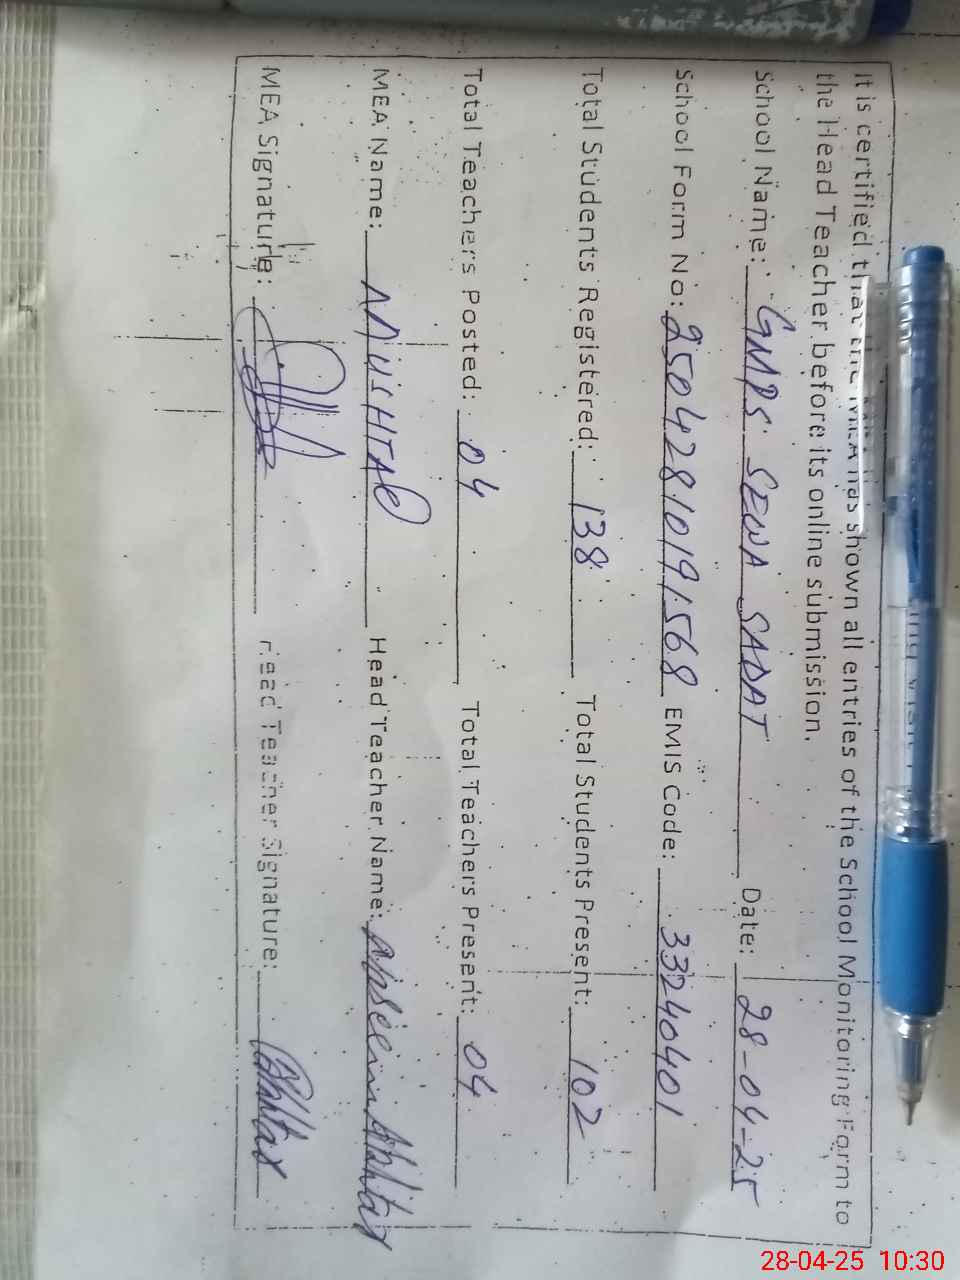 It is certified that the MEA has shown all entries of the School Monitoring Form to
the Head Teacher before its online submission.
School Name: GMPS SEWA SADAT Date: 28-04-25
School Form No: 25042810191568 EMIS Code: 33240401
Total Students Registered: 138 Total Students Present: 102
Total Teachers Posted: 04 Total Teachers Present: 04
MEA Name: MUSHTAQ Head Teacher Name: Akhtar
MEA Signature: Head Teacher Signature: Akhtar
28-04-25 10:30